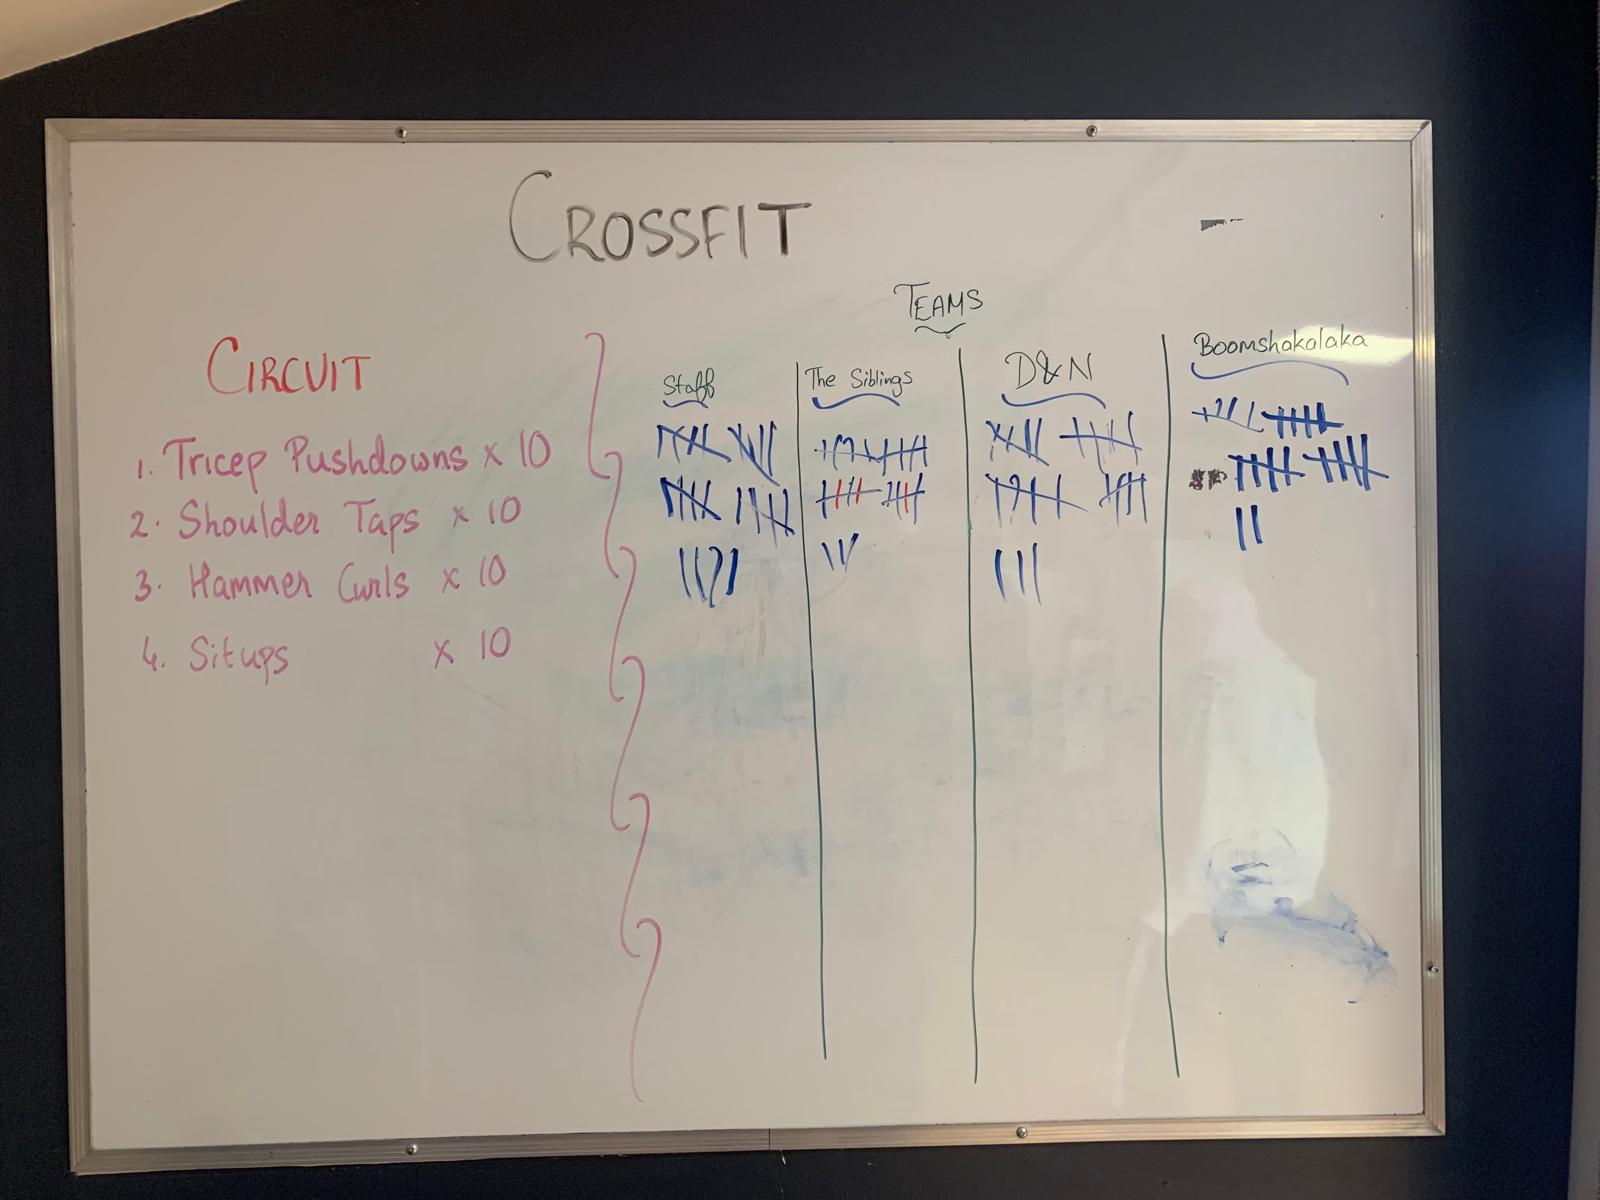 CROSSFIT
TEAMS
CIRCUIT
Staff
The Siblings
D&N
Boomshakalaka
1. Tricep Pushdowns x 10
2. Shoulder Taps x 10
3. Hammer Curls x 10
4. Situps x 10